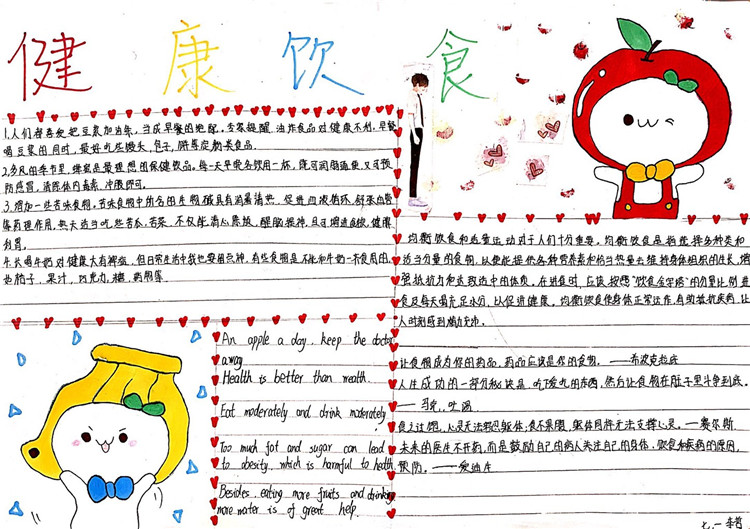 健康饮食
1.人们都喜欢把豆浆加油条,当成早餐的绝配,专家提醒,油炸食品对健康不利,早餐
喝豆浆的同时,最好吃些馒头、包子、全麦谷物类食品。
2.多风的季节里,蜂蜜是最理想的保健饮品。每天早晚各饮用一杯,既可润肠通便,又可预
防感冒,清除体内毒素,冲服即可。
3.增加一些苦味食物。苦味食物中所含的生物碱具有消暑清热、促进血液循环、舒张血管
等药理作用。热天适当吃些苦瓜、苦菜,不仅能清心除烦、醒脑提神,且可增进食欲、健脾
利胃。
4.长喝牛奶对健康大有裨益,但日常生活中我也要留意种,有些食物是不能和牛奶一齐食用的,
也橘子、果汁、巧克力、糖、药物等。
均衡饮食和适量运动对于人们十分重要。均衡饮食是指选择多种类和
适当分量的食物,以便能提供各种营养素和恰当热量去维持身体组织的生长,增
强抵抗力和达致适中的体重。在进食时,应该按照“饮食金字塔”的分量比例进
食及每天喝充足水分,以促进健康。均衡饮食使身体正常运作,有助抵抗疾病,让
人时刻感到精力充沛。
让食物成为你的药品,药品应该是你的食物。——希波克拉底
人生成功的一部分秘诀是,吃下爱吃的东西,然后让食物在肚子里斗争到底。
——马克·吐温
食之过饱,心灵无法驾驭躯体;食不果腹,躯体同样无法支撑心灵。——塞尔斯
未来的医生不开药,而是鼓励自己的病人关注自己的身体、饮食和疾病的原因、
预防。——爱迪生
An apple a day, keep the doctor
away.
Health is better than wealth.
Eat moderately and drink moderately.
Too much fat and sugar can lead
to obesity, which is harmful to health.
Besides, eating more fruits and drinking
more water is of great help.
七、一